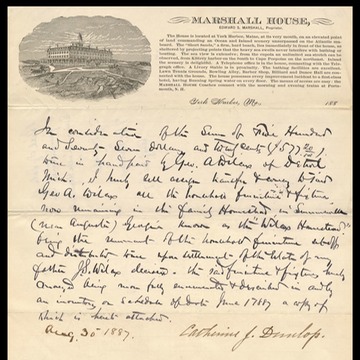 MARSHALL HOUSE,
EDWARD S. MARSHALL, Proprietor.
The House is located at York Harbor, Maine, at its very mouth, on an elevated point
of land commanding an Ocean and Island scenery unsurpassed on the Atlantic sea-
board. The "Short Sands," a firm, hard beach, lies immediately in front of the house, so
sheltered by projecting points that the heavy sea swells never interfere with boating or
bathing. The sea view is extensive, from the cupola an unlimited sea stretch can be
observed, from Kittery on the South to Cape Porpoise on the northeast. Inland
the scenery is delightful. A Telephone office is in the house, connected with the Tele-
graph office. A Livery stable is on the premises. The bathing facilities are excellent.
Lawn Tennis Grounds, Bowling Alley, Barber Shop, Billiard and Dance Hall are con-
nected with the house.
MARSHALL HOUSE Coaches connect with the morning and evening trains at Ports-
mouth, N. H.
York Harbor, Me. 188
In consideration of the Sum of Five Hundred
and Seventy Seven Dollars and Twenty cents ($577 20/100)
to me in hand paid by Geo. A. Wilcox of Detroit
Mich. I hereby sell assign transfer & convey to said
Geo A. Wilcox all the household furniture & fixtures
now remaining in the Family Homestead in Summerville
(near Augusta) Georgia known as the "Wilcox Homestead"
being the remnant of the household furniture
and distributed to me upon settlement of the Estate of my
father J. S. Wilcox deceased – the said furniture & fixtures hereby
conveyed being more fully enumerated & described in
an inventory or Schedule of date June 1887 a copy of
which is hereto attached.
Aug. 30 1887. Catherine J. Dunlop.